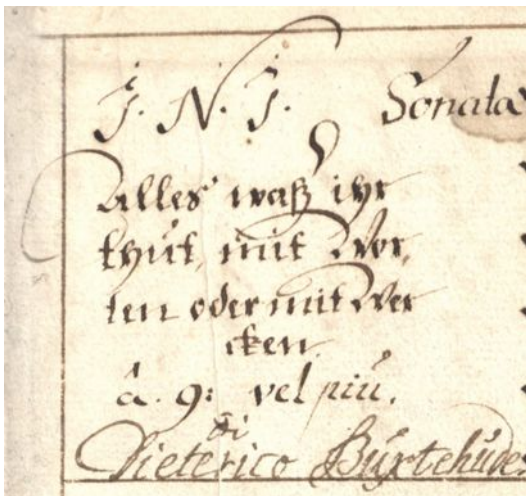 J. N. J. Sonata
Alles waß ihr
thut, mit Wor,
ten oder mit Wer
cken.
â. 9: vel piu.
di
Dieterico Buxtehude